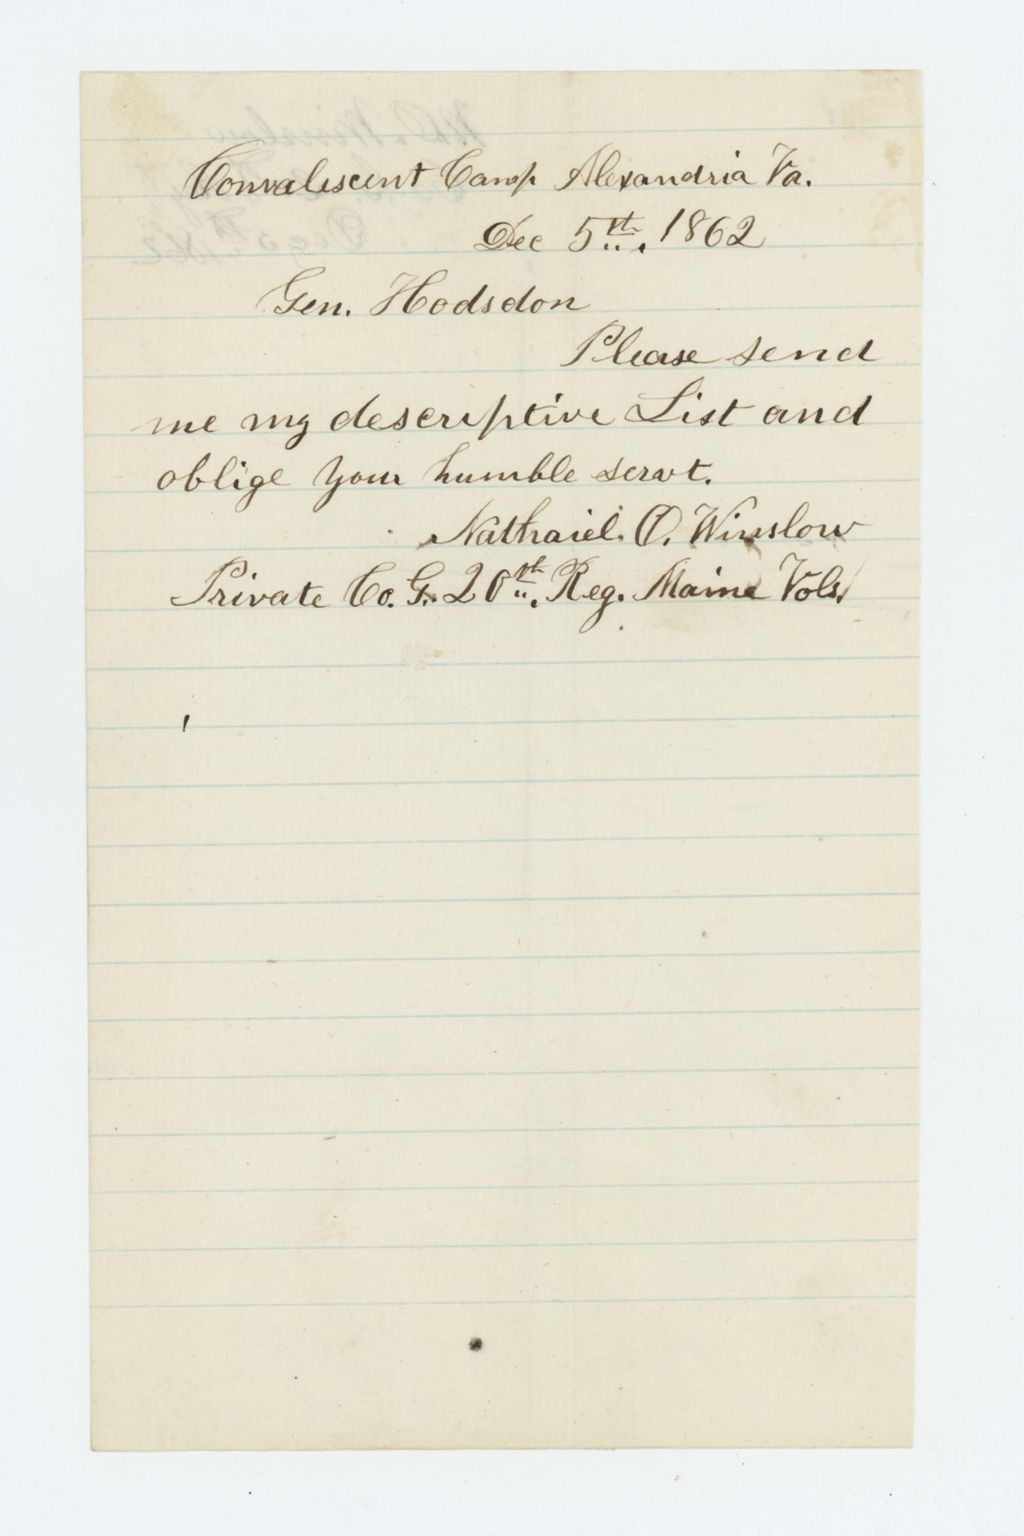 Convalescent Camp Alexandria Va.
Dec 5th. 1862
Gen. Hodsdon
Please send
me my descriptive List and
oblige your humble servt.
Nathaiel. O. Winslow
Private Co. G. 20th. Reg. Maine Vols.